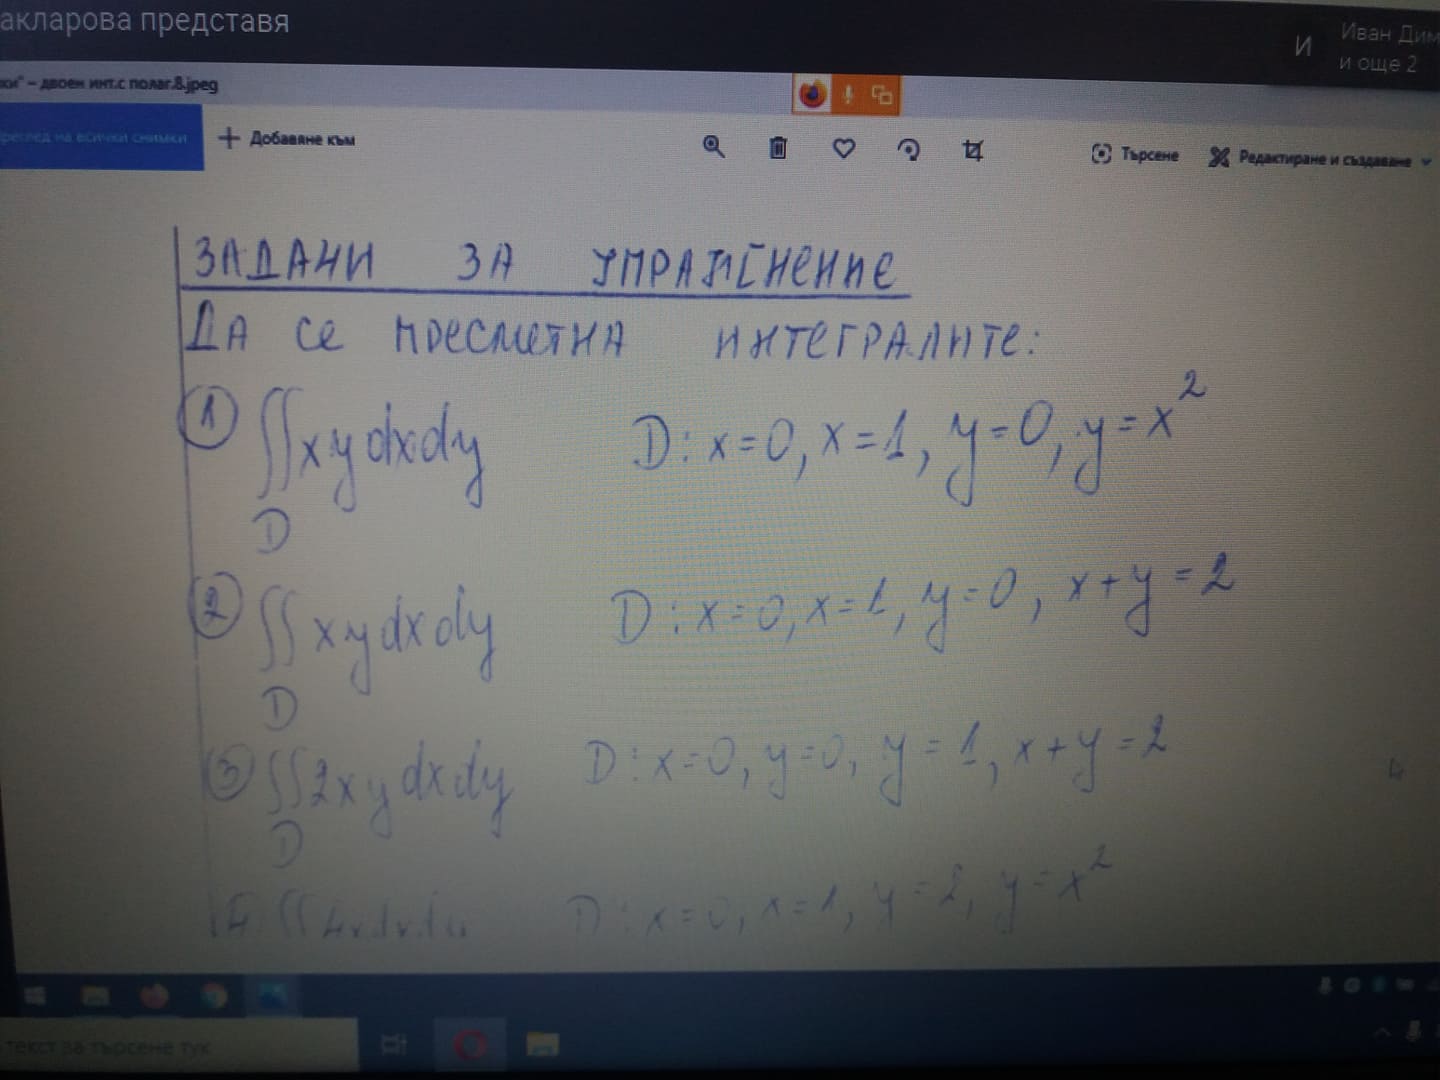 акларова представя
И
Иван Дим
и още 2
– двоен инт.с полаг.8.jpeg
преглед на всички снимки
Добавяне към
Търсене
Редактиране и създаване
ЗАДАЧИ ЗА УПРАЖНЕНИЕ
ДА СЕ ПРЕСМЕТНА ИНТЕГРАЛИТЕ:
① ∬xydxdy D: x=0, x=1, y=0, y=x²
D
② ∬xydxdy D: x=0, x=1, y=0, x+y=2
D
③ ∬2xydxdy D: x=0, y=0, y=1, x+y=2
D
D: x=0, x=1, y=2, y=x²
текст за търсене тук